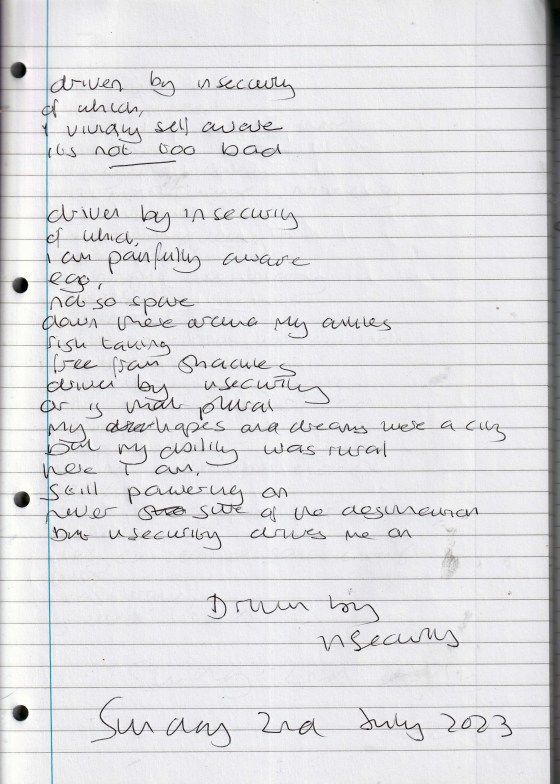 driven by insecurity
of which,
I vividly self aware
it's not too bad
driven by insecurity
of which,
i am painfully aware
ego,
not so spare
down there around my ankles
risk taking
free from shackles
driven by insecurity
or is that plural
my hopes and dreams were a city
but my ability was rural
here I am,
still powering on
never sure of the destination
but insecurity drives me on
Driven by
insecurity
Sunday 2nd July 2023